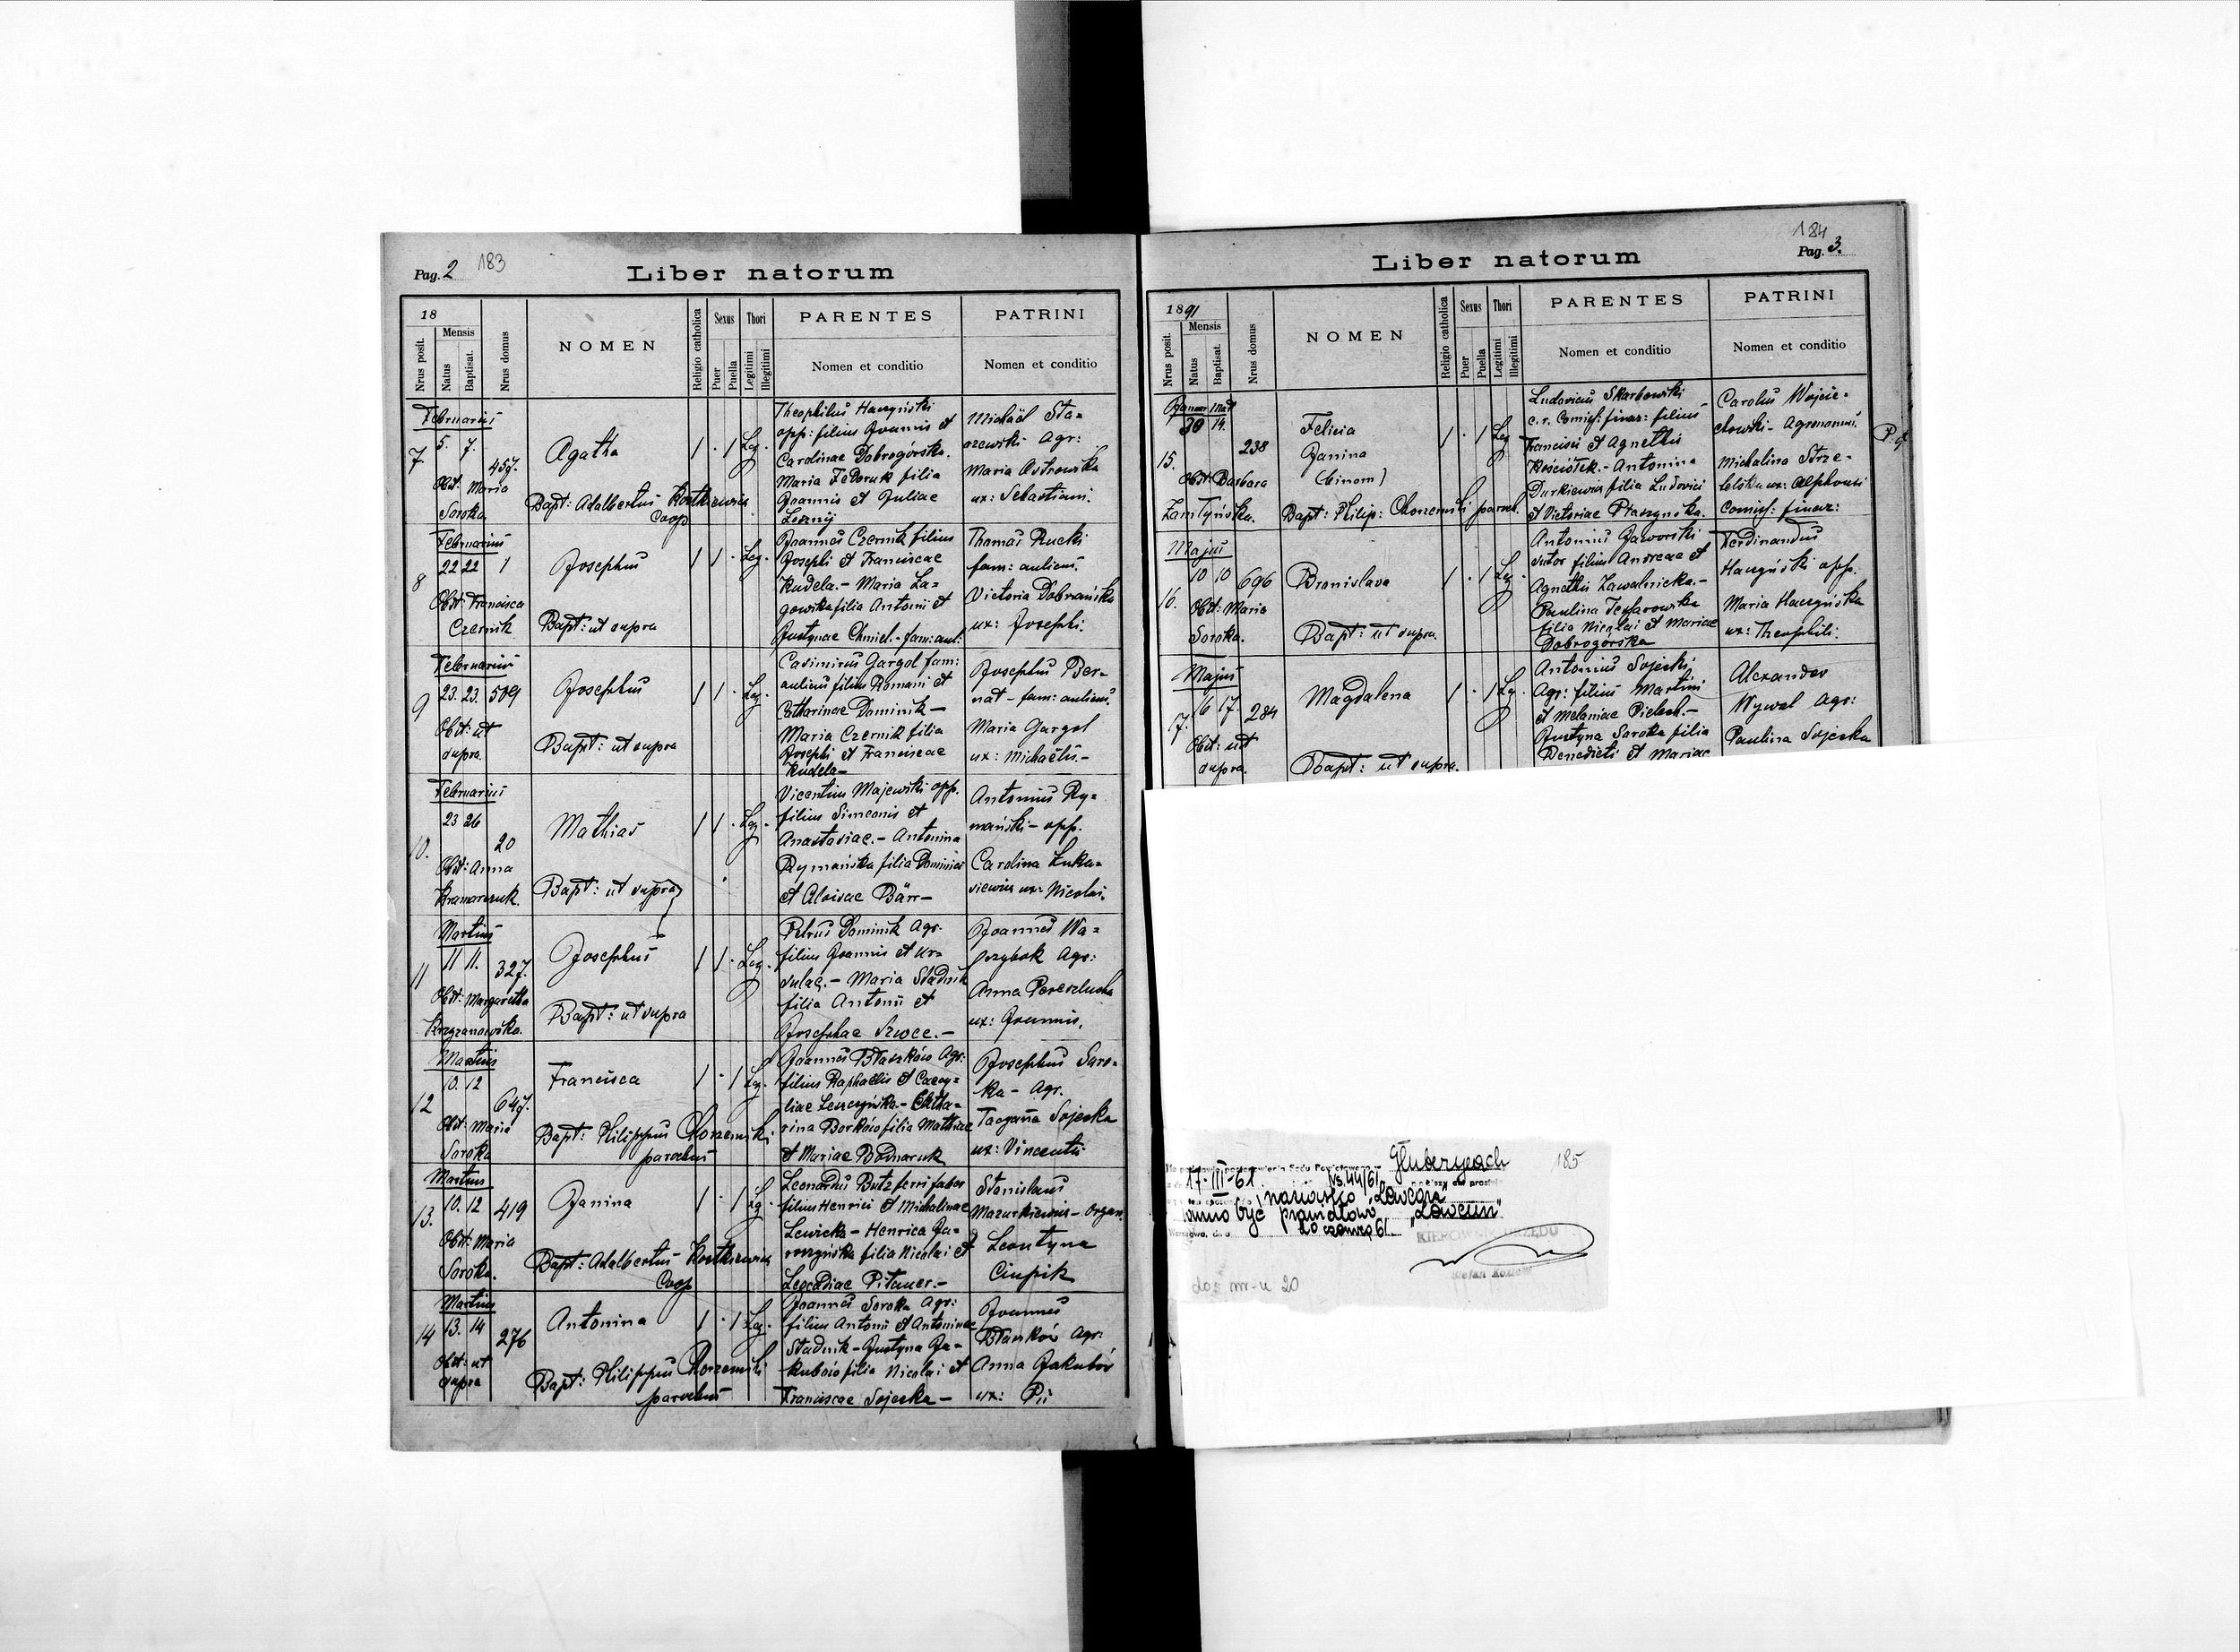 Pag. 2 183
Liber natorum
18
Nrus posit.
Mensis
Natus
Baptisat.
Nrus domus
NOMEN
Religio catholica
Sexus
Puer
Puella
Thori
Legitimi
Illegitimi
PARENTES
Nomen et conditio
PATRINI
Nomen et conditio
Februarius
7 5. 7. 457.
Obst: Maria
Soroka
Agatha
Bapt: Adalbertus Kostkiewicz
Coop
1 . 1 Leg.
Theophilus Haczyński
opp: filius Joannis et
Carolinae Dobrogórska.
Maria Fedoruk filia
Joannis et Juliae
Michaël Sta=
Agr:
Maria Ostrowska
ux: Sebastiani.
Februarius
8 22 22 1
Obst: Francisca
Czernik
Josephus
Bapt: ut supra
1 1 . Leg.
Joannes Czernik filius
Josephi et Franciscae
Kudela. - Maria La=
gowska filia Antonii et
Justynae Chmiel. - fam: aul:
Thomas Rucki
fam: aulicus.
Victoria Dobrańska
ux: Josephi.
Februarius
9 23. 23. 509
Obst: ut
supra.
Josephus
Bapt: ut supra
1 1 . Leg.
Casimirus Gargol fam:
aulicus filius Romani et
Catharinae Dominik -
Maria Czernik filia
Josephi et Franciscae
Kudela -
Josephus Ber=
nat - fam: aulicus.
Maria Gargol
ux: Michaëlis. -
Februarius
10. 23 26 20
Obst: Anna
Kramarczuk.
Mathias
Bapt: ut supra
1 1 . Leg.
Vicentius Majewski opp.
filius Simeonis et
Anastasiae. - Antonina
Rymańska filia Dominici
et Aloisae Bärr -
Antonius Ry=
mański - opp.
Carolina Luka=
siewicz ux: Nicolai.
Martius
11 11 11. 327.
Obst: Margaretha
Krzyzanowska.
Josephus
Bapt: ut supra
1 1 . Leg.
Petrus Dominik Agr.
filius Joannis et Ur=
sulae. - Maria Stadnik
filia Antonii et
Josephae Szwec. -
Joannes Wa=
Agr:
Anna
ux: Joannis.
Martius
12 10. 12 647.
Obst: Maria
Soroka
Francisca
Bapt: Philippus Chorzemski
parochus
1 . 1 Leg.
Joannes Błaszków Agr:
filius Raphaëlis et Caecy=
liae Leszczyńska. - Catha=
rina Borków filia Mathiae
et Mariae Bodnaruk
Josephus Soro=
ka - Agr.
Tacyana Sojecka
ux: Vincentii
Martius
13. 10. 12 419
Obst: Maria
Soroka.
Janina
Bapt: Adalbertus Kostkiewicz
Coop
1 . 1 Leg.
Leonardus Butz ferri faber
filius Henrici et Michalinae
Lewicka - Henrica Ja=
roszyńska filia Nicolai et
Leocadiae Pitauer. -
Stanislaus
Mazurkiewicz - organ.
Leontyna
Ciupik
Martius
14 13. 14 276
Obst: ut
supra
Antonina
Bapt: Philippus Chorzemski
parochus
1 . 1 Leg.
Joannes Soroka Agr:
filius Antonii et Antoninae
Stadnik - Justyna Ja=
kubów filia Nicolai et
Franciscae Sojecka -
Joannes
Błaszków Agr:
Anna Jakubów
ux: Pii
184
Pag. 3.
Liber natorum
1891
Nrus posit.
Mensis
Natus
Baptisat.
Nrus domus
NOMEN
Religio catholica
Sexus
Puer
Puella
Thori
Legitimi
Illegitimi
PARENTES
Nomen et conditio
PATRINI
Nomen et conditio
15. 30 14. 238
Obst: Barbara
Zamtyńska.
Felicia
Janina
(binom)
Bapt: Philip: Chorzemski paroch.
1 . 1 Leg
Ludovicus Skarbowski
c.r. Comiss: finan: filius
Francisci et Agnethis
Kościółek. - Antonina
Durkiewicz filia Ludovici
et Victoriae Ptaszynska.
Carolus Wojcie=
chowski - Agronomus.
Michalina Strze=
lelska ux: Alphonsi
Comiss: finan:
Majus
16. 10 10 696
Obst: Maria
Soroka.
Bronislava
Bapt: ut supra.
1 . 1 Leg.
Antonius Jaworski
sutor filius Andreae et
Agnethis Zawalnicka. -
Paulina Tesarowska
filia Nicolai et Mariae
Dobrogorska
Ferdinandus
Haczyński opp.
Maria Haczyńska
ux: Theophili.
Majus
17. 16 17. 284
Obst: ut
supra.
Magdalena
Bapt: ut supra.
1 . 1 Leg.
Antonius Sojecki
Agr: filius Martini
et Melaniae Pielech. -
Justyna Soroka filia
Benedicti et Mariae
Alexander
Wywal Agr:
Paulina Sojecka
Głubczycach 185
17-III-61. Ns. 44/61
nazwisko
winno być prawidłowo
20 czerwca 61
KIEROWNIK URZĘDU
20